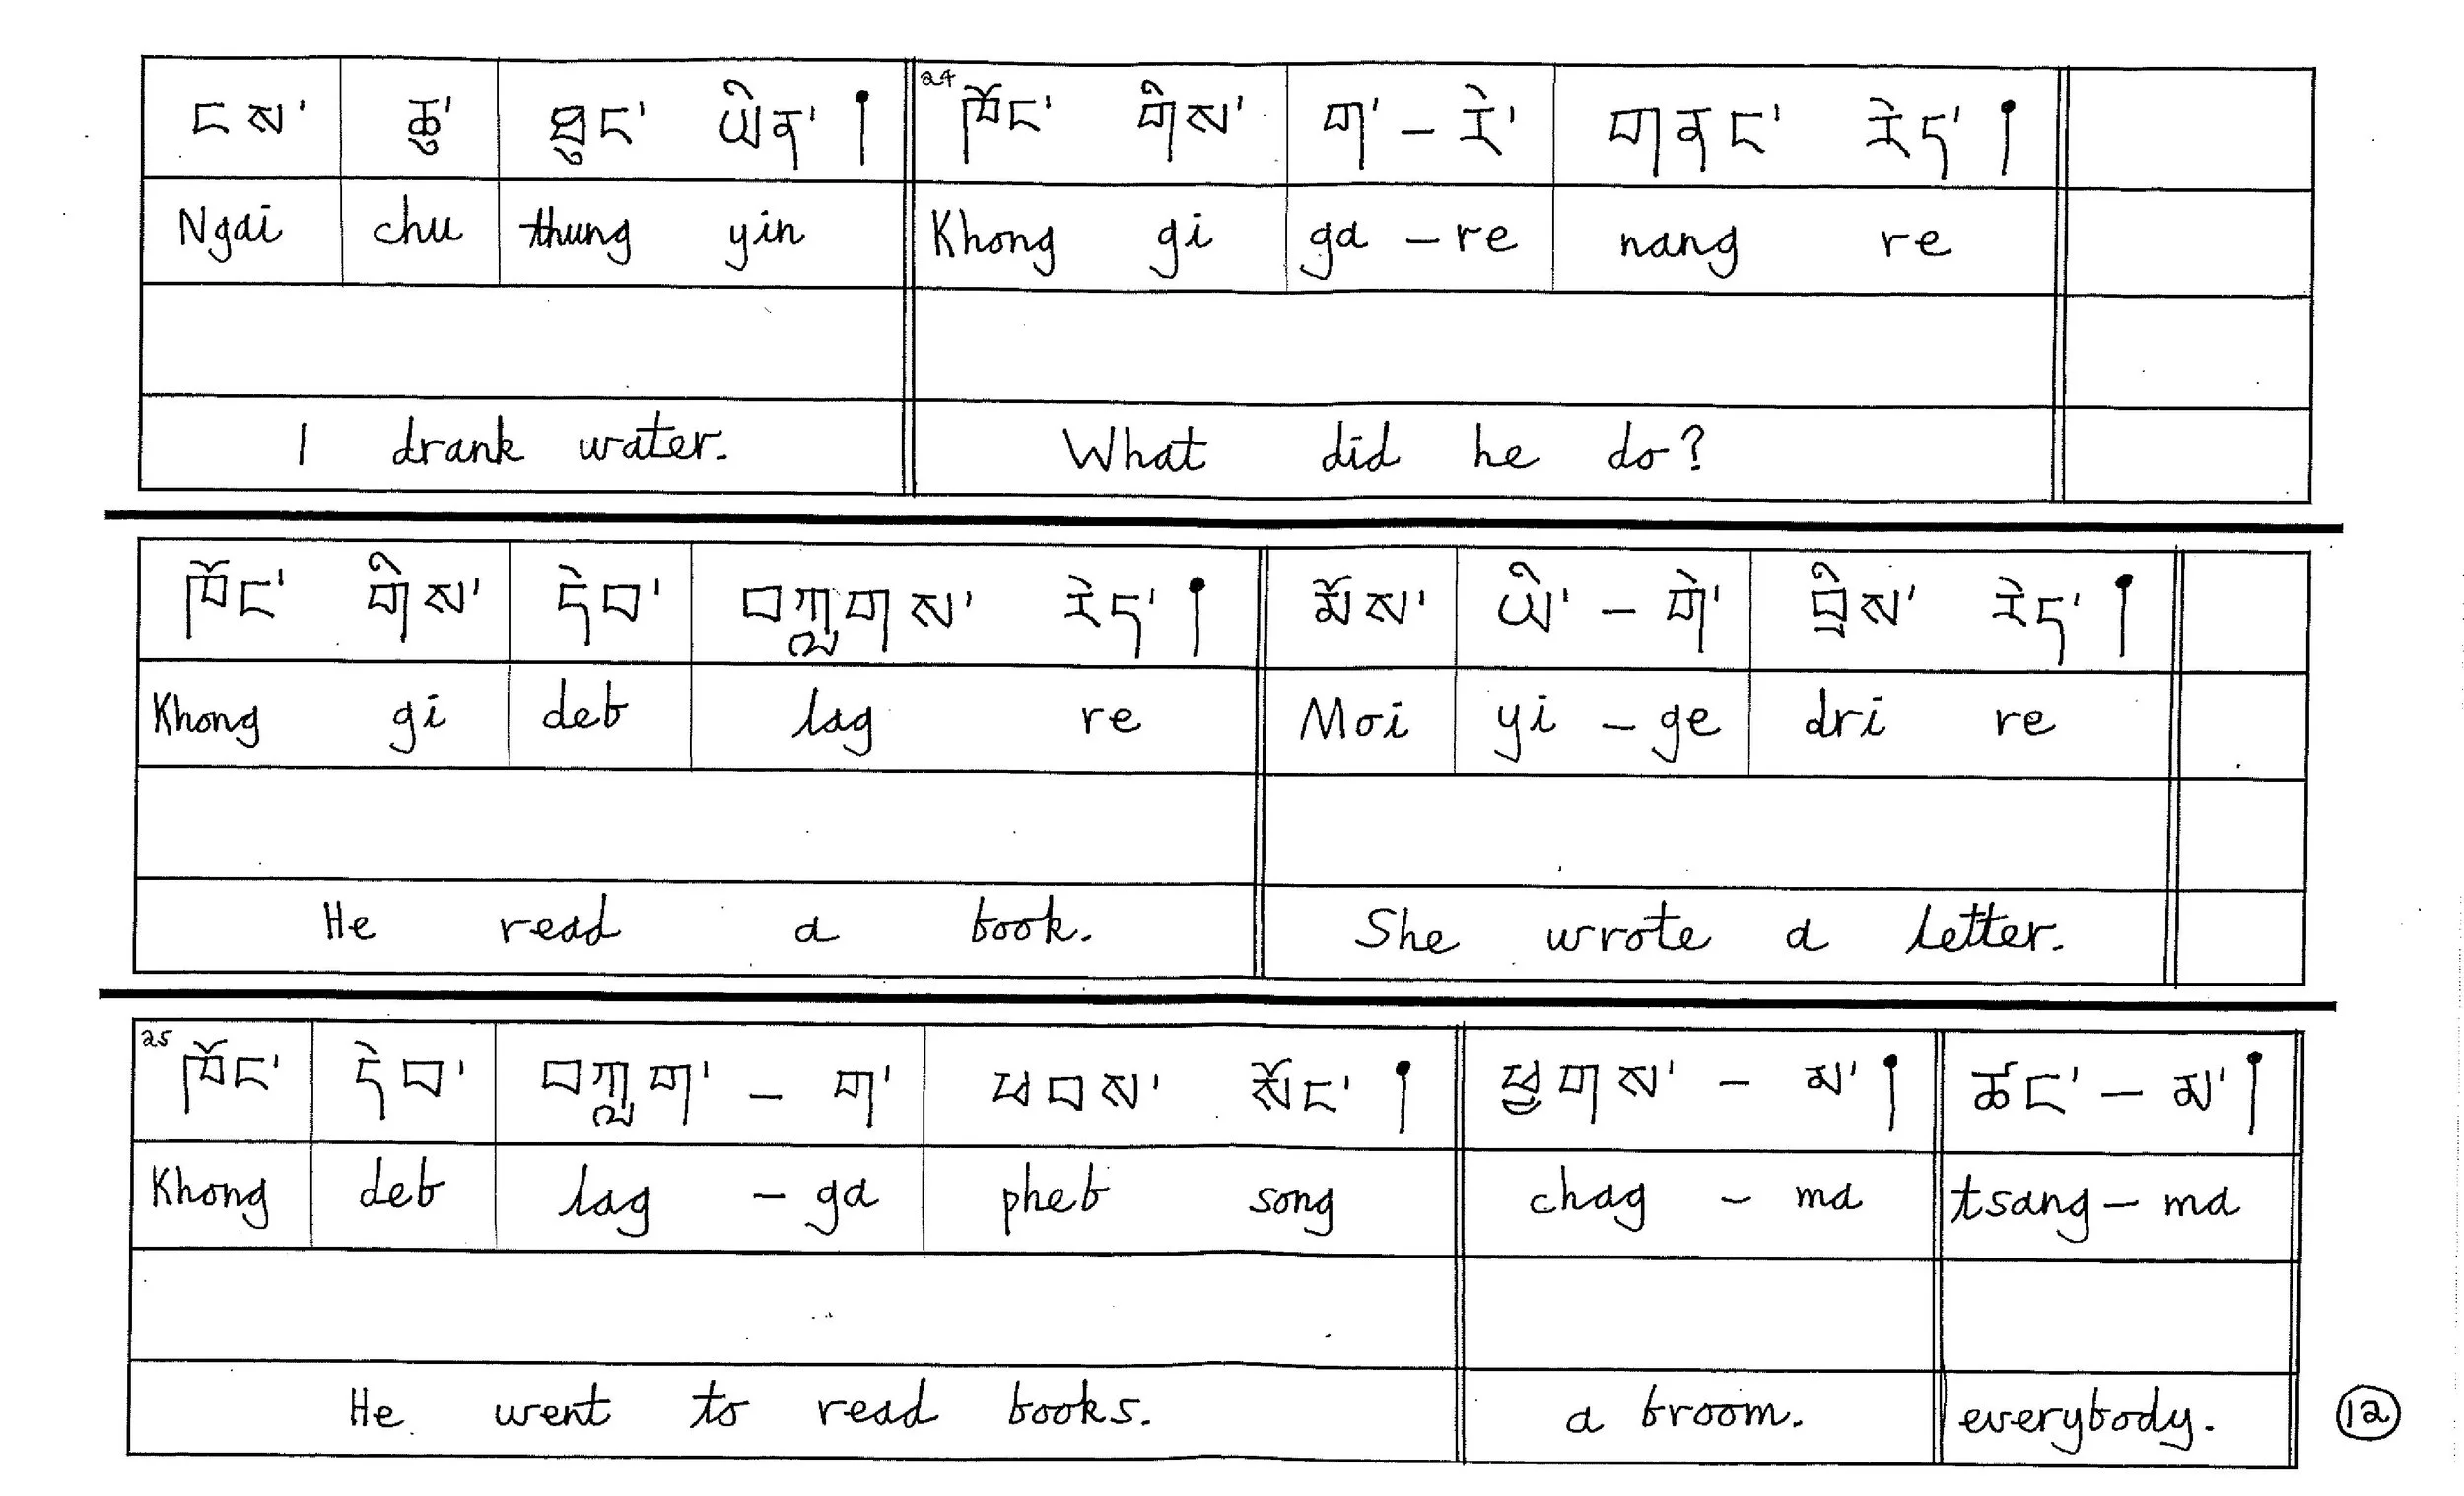 ངས་ ཆུ་ ཐུང་ ཡིན་། 24 ཁོང་ གིས་ ག་ - རེ་ གནང་ རེད་།
Ngai chu thung yin Khong gi ga - re nang re
I drank water. What did he do?
ཁོང་ གིས་ དེབ་ བཀླགས་ རེད་། མོས་ ཡི་ - གེ་ བྲིས་ རེད་།
Khong gi deb lag re Moi yi - ge dri re
He read a book. She wrote a letter.
25 ཁོང་ དེབ་ བཀླག་ - ག་ ཕབས་ སོང་། ཕྱགས་ - མ་། ཚང་ - མ་།
Khong deb lag - ga pheb song chag - ma tsang - ma
He went to read books. a broom. everybody.
12